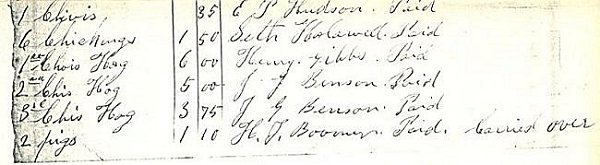 1 Chivis 35 E P Hudson. Paid
6 Chickings 1 50 Seth Holowell Paid
1st Chois Hog 6 00 Henry Gibbs Paid
2nd Chis Hog 5 00 J J Benson Paid
3rd Chis Hog 3 75 J J Benson Paid
2 pigs 1 10 H. J. Paid. Carried over